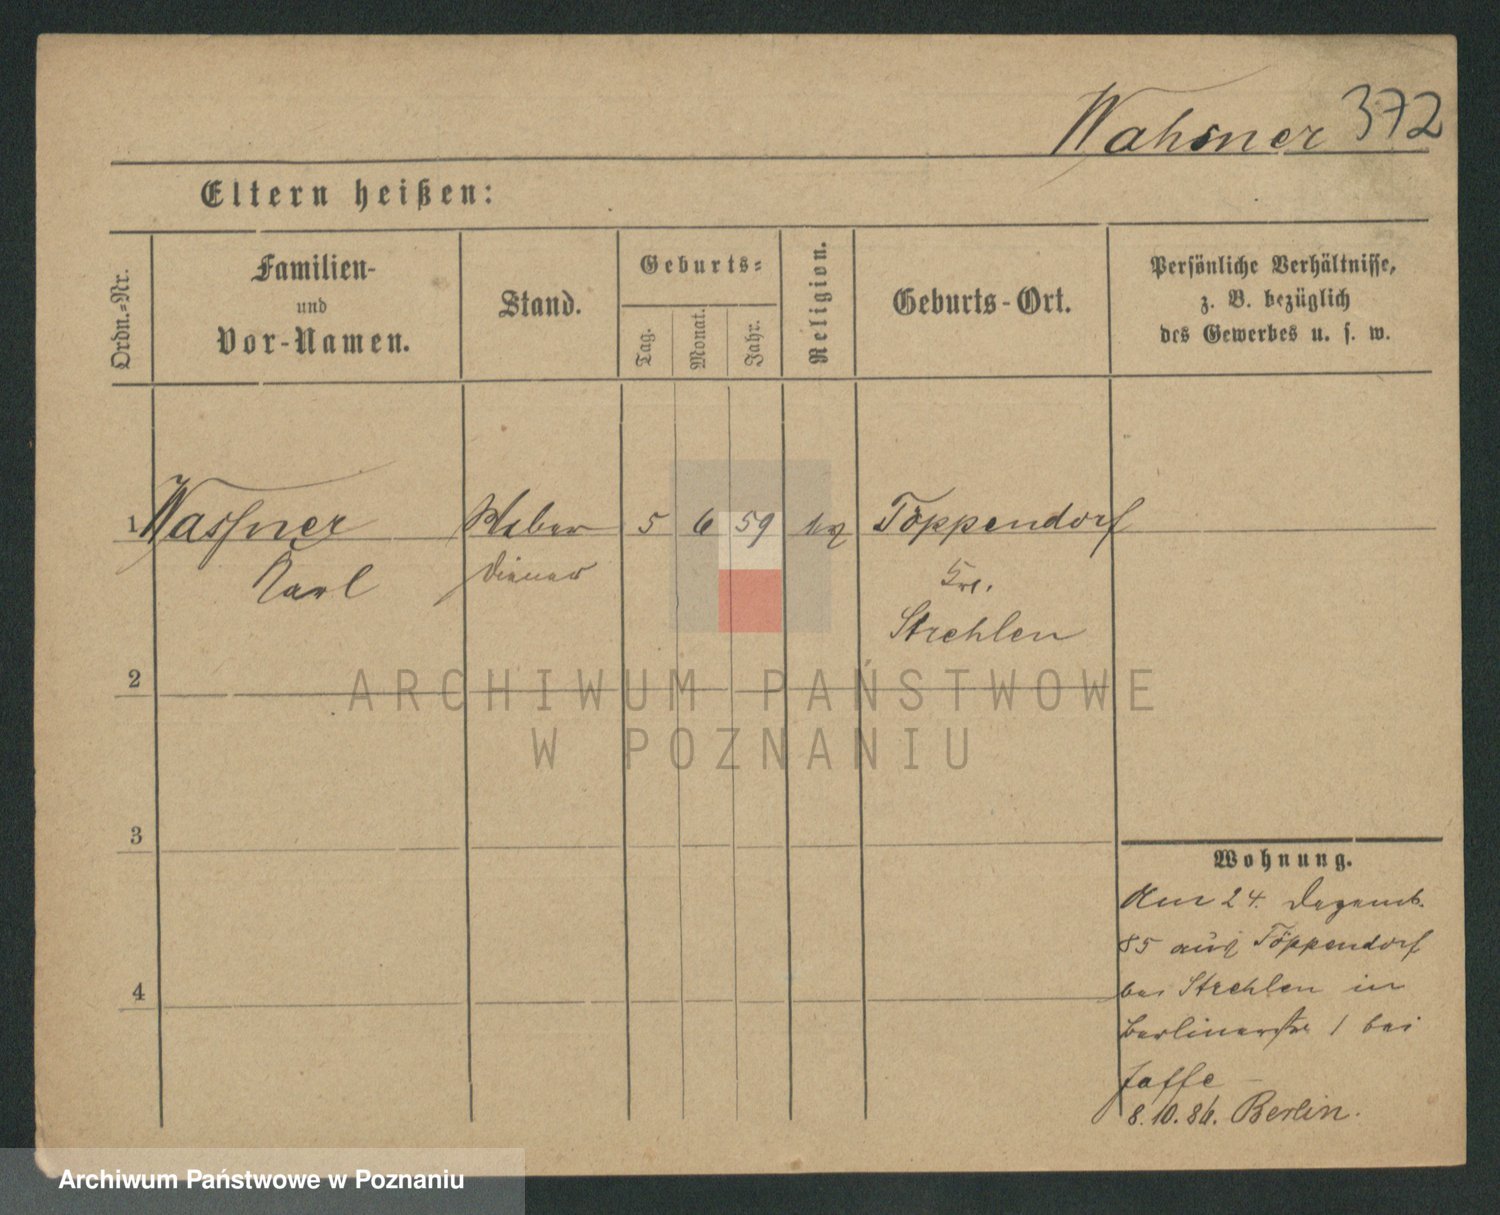 Wahsner 372
Eltern heißen:
Ordn.-Nr.
Familien-
und
Vor-Namen.
Stand.
Geburts-
Tag.
Monat.
Jahr.
Religion.
Geburts-Ort.
Persönliche Verhältnisse,
z. B. bezüglich
des Gewerbes u. s. w.
1 Wassner 5 6 59 Töppendorf
Karl Diener
Kr.
Strehlen
2
ARCHIWUM PAŃSTWOWE
W POZNANIU
3
4
Wohnung.
Am 24. Dezemb.
85 aus Töppendorf
bei Strehlen in
Berlinerstr 1 bei
Jaffe
8.10.86. Berlin.
Archiwum Państwowe w Poznaniu